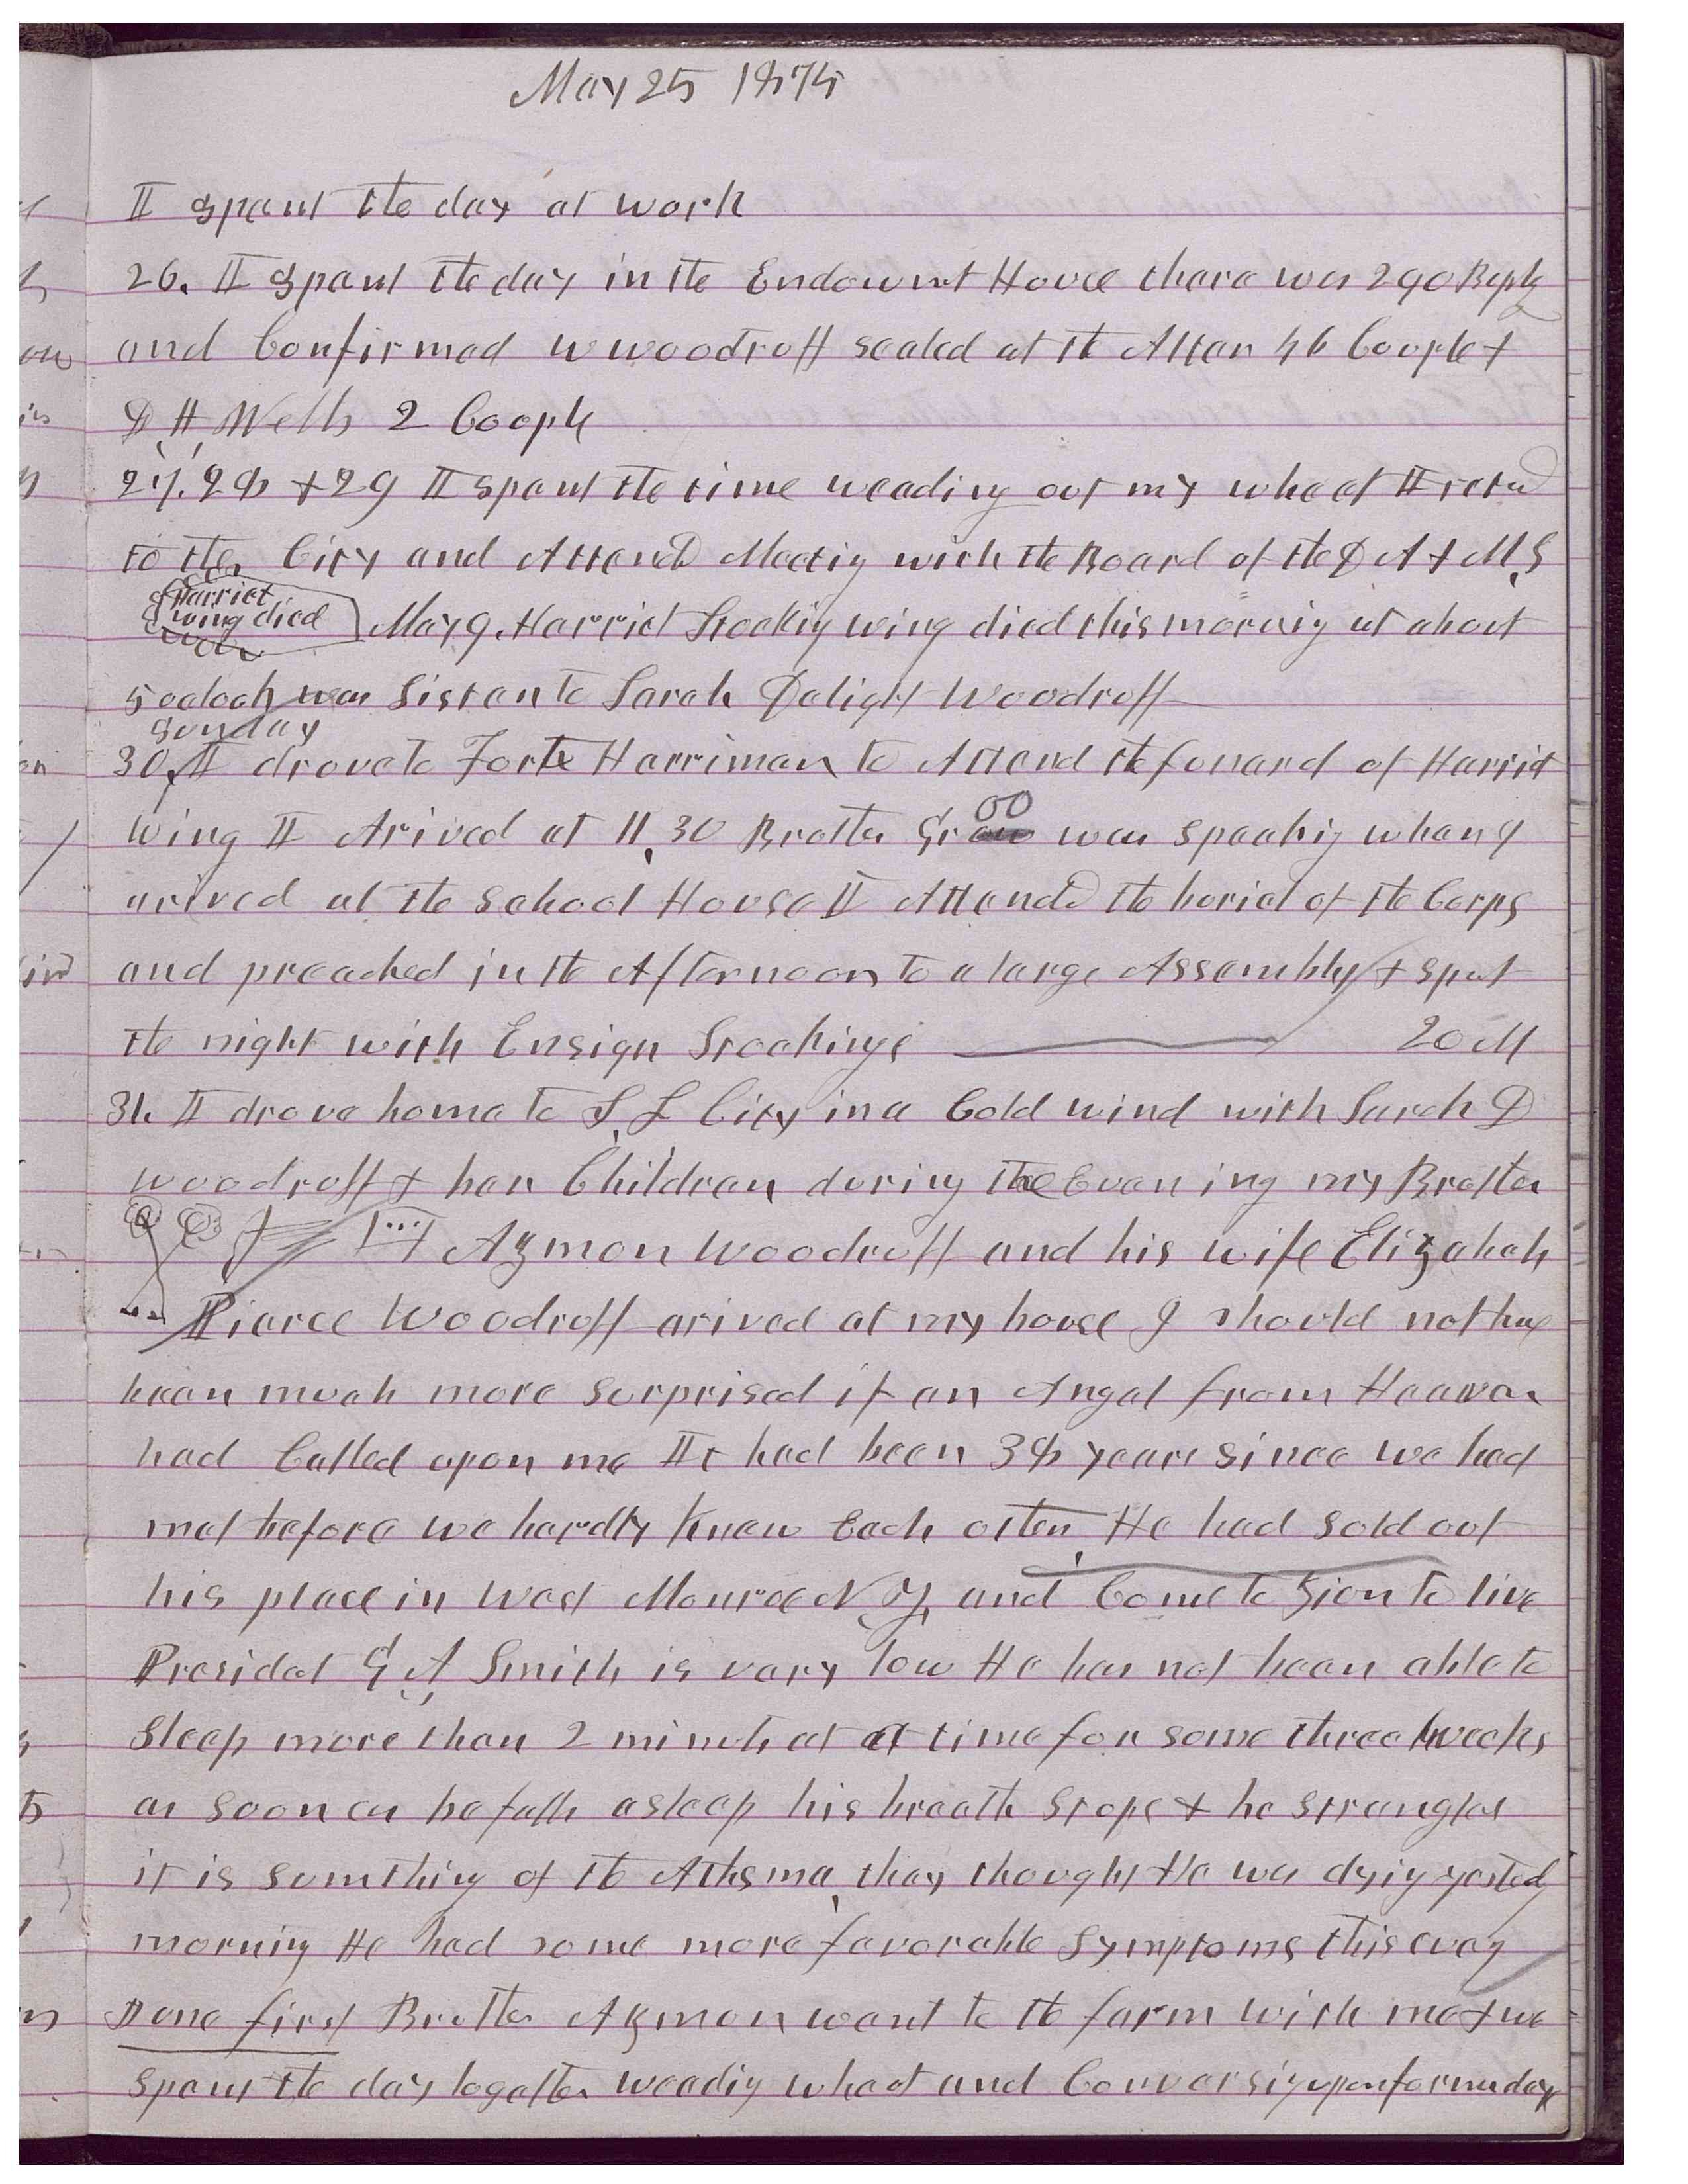 May 25 1875
I spent the day at work
26. I spent the day in the Endowmt House there was 290 Baptz
and Confirmed W Woodruff sealed at the Altar 46 Couple &
D. H. Wells 2 Coople
27. 28 & 29 I spent the time weading out my wheat I retd
to the City and Attend Meeting with the Board of the D A & M, S
Harriet
wing died
May 9. Harriet Stocking wing died this morning at about
5 oclock was Sister to Sarah Delight Woodruff
Sunday
30, I drove to Forte Harriman to Attend the funaral of Harriet
Wing I Arived at 11,30 Brother Groo was speaking when I
arived at the School House I Attend the burial of the Corps
and preached in the Afternoon to a large Assembly & spent
the night with Ensign Stocking 20 M
31. I drove home to S, L City in a Cold wind with Sarah D
Woodruff & her Children during the Evening my Brother
Azmon Woodruff and his wife Elizabeh
Pierce Woodruff arived at my house I should not have
been much more surprised if an Angel from Heaven
had Called upon me It had been 38 years since we had
met before we hardly knew Each other, He had sold out
his place in West Monroe N. Y, and Come to Zion to live
Presidet G, A, Smith is very low He has not been able to
Sleep more than 2 minuts at a time for some three weeks
as soon as he falls asleep his breath stops & he strangles
it is somthing of the Athsma, they thought He was dying yestedy
morning He had some more favorable Symptoms this eveg
June first Brother Azmon went to the farm with me & we
spent the day togather weeding wheat and Conversing upon former days